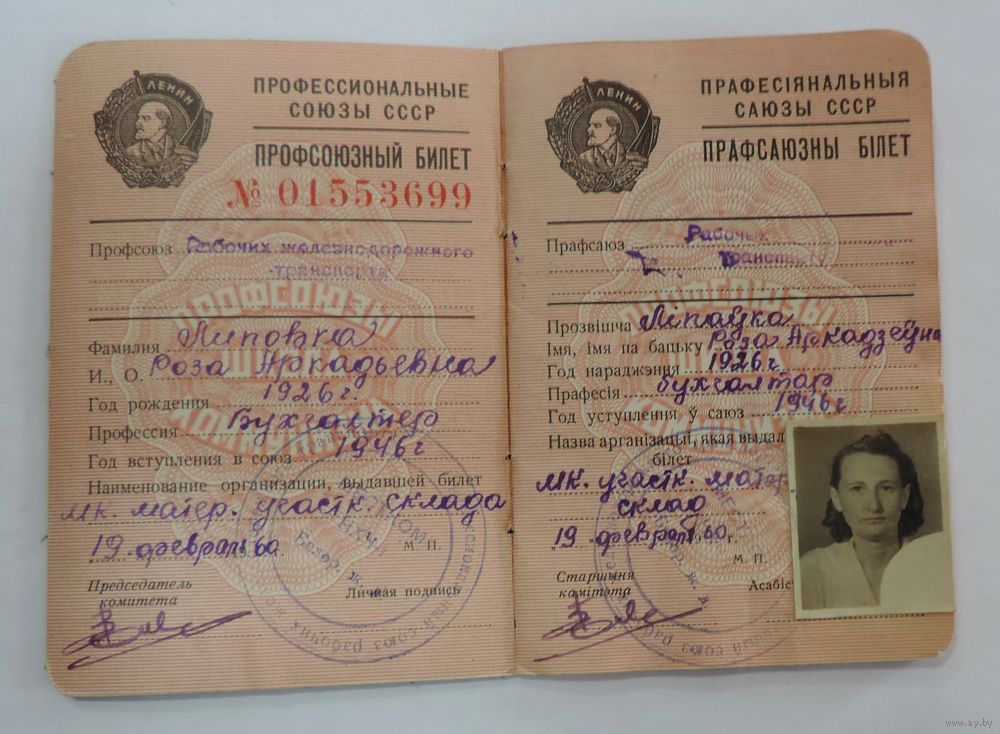 ЛЕНИН
ПРОФЕССИОНАЛЬНЫЕ
СОЮЗЫ СССР
ПРОФСОЮЗНЫЙ БИЛЕТ
№ 01553699
Профсоюз Рабочих железнодорожного
транспорта
Фамилия Липовка
И., О. Роза Аркадьевна
Год рождения 1926 г.
Профессия Бухгалтер
Год вступления в союз 1946 г
Наименование организации, выдавшей билет
мк. матер. участк. склада
„19" февраль 60 г.
М. П.
Председатель
комитета
Личная подпись
ЛЕНИН
ПРАФЕСІЯНАЛЬНЫЯ
САЮЗЫ СССР
ПРАФСАЮЗНЫ БІЛЕТ
Прафсаюз Рабочых
транспарту
Прозвішча Ліпаўка
Імя, імя па бацьку Роза Аркадзеўна
Год нараджэння 1926 г.
Прафесія бухгалтар
Год уступлення ў саюз 1946 г
Назва арганізацыі, якая выдал
білет
мк. участк. матер
склад
„19" февраль 60 г.
М. П.
Старшыня
камітэта
Асабіс
www.ay.by